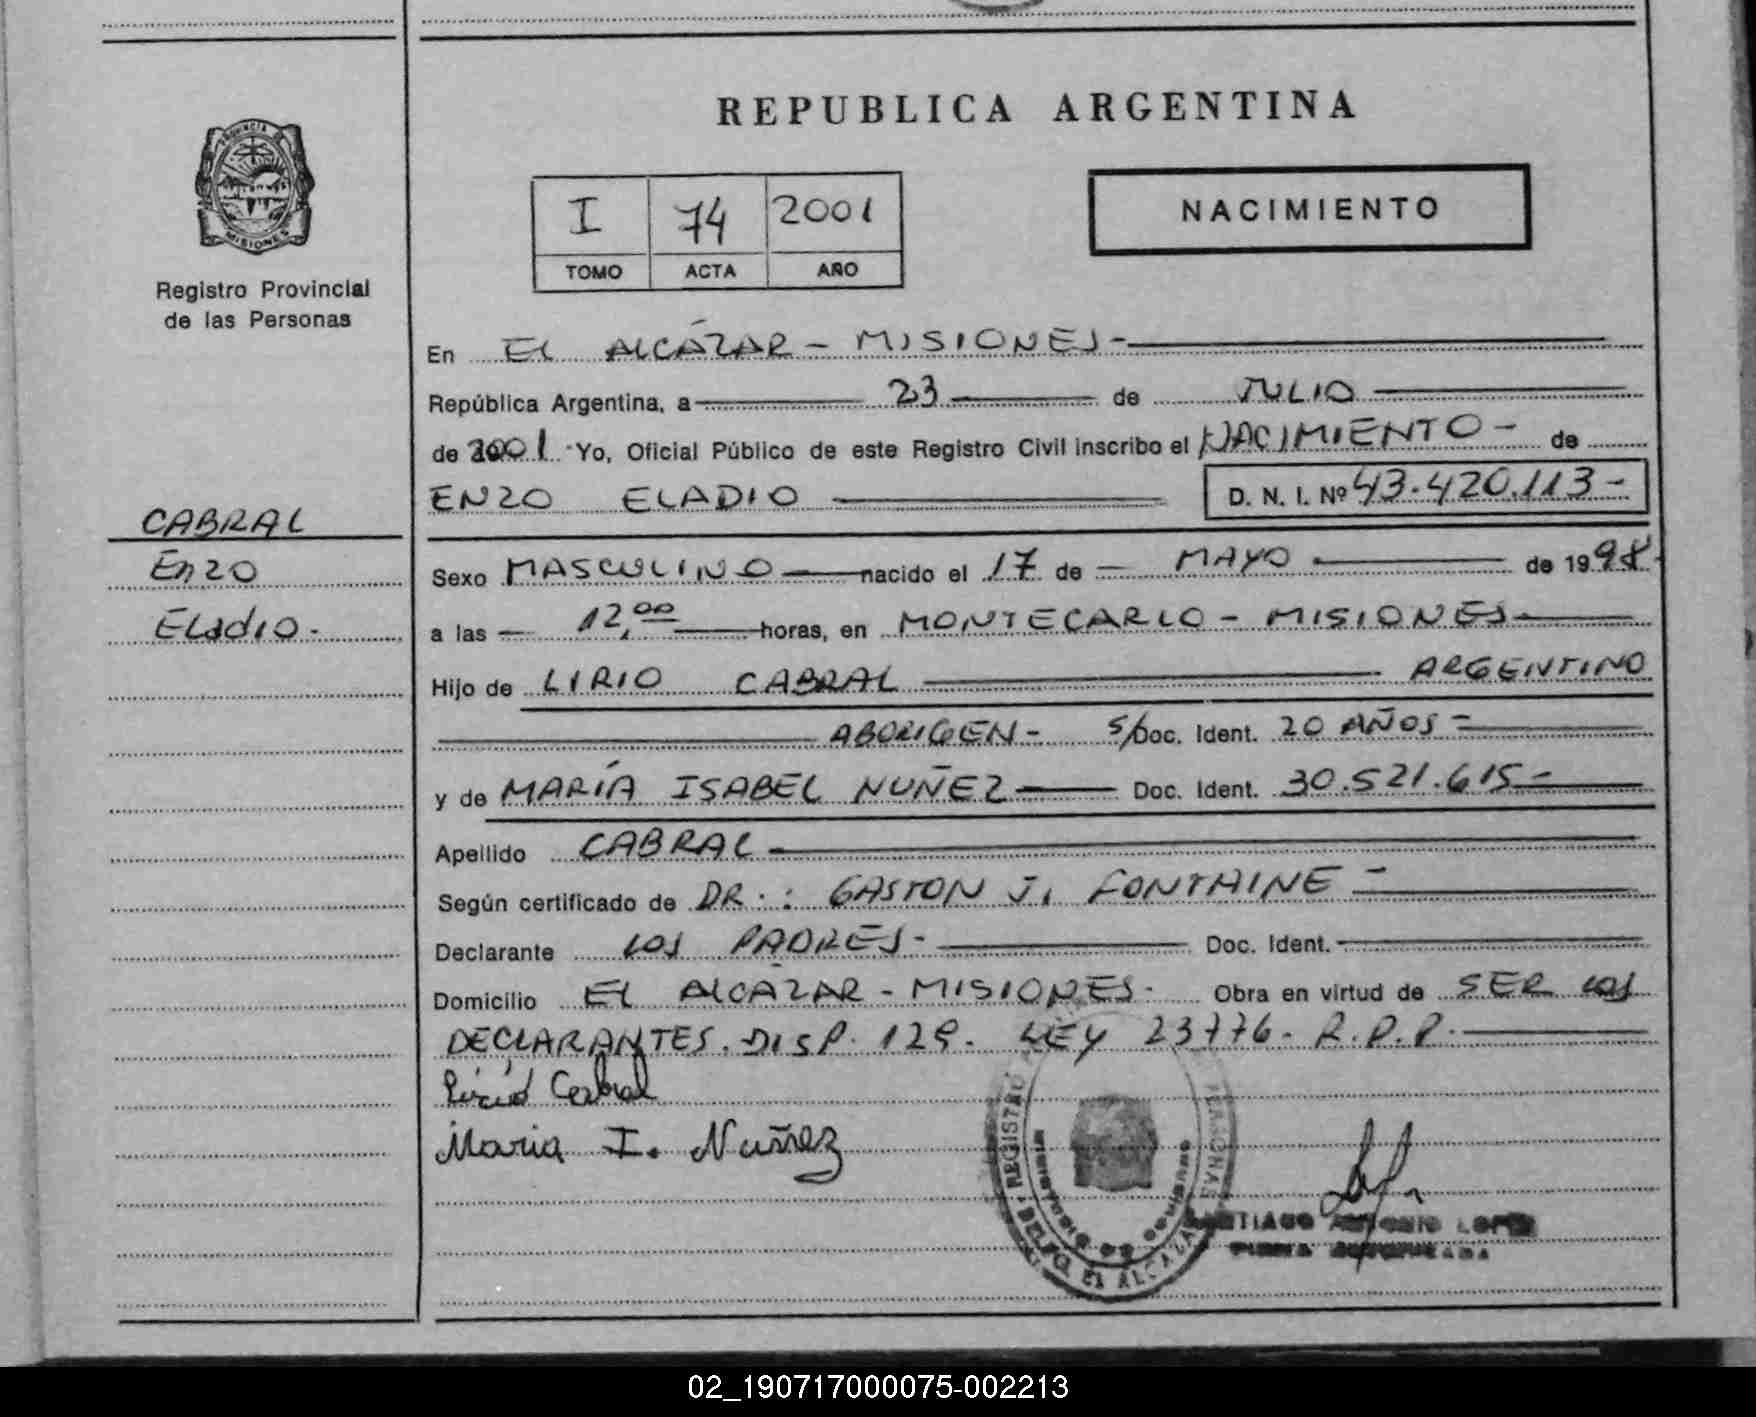 REPUBLICA ARGENTINA
PROVINCIA DE
MISIONES
Registro Provincial
de las Personas
I 74 2001
TOMO ACTA AÑO
NACIMIENTO
En EL ALCÁZAR - MISIONES -
República Argentina, a 23 de JULIO
de 2001 Yo, Oficial Público de este Registro Civil inscribo el NACIMIENTO - de
ENZO ELADIO D. N. I. Nº 43.420.113 -
CABRAL
Enzo
Eladio -
Sexo MASCULINO nacido el 17 de MAYO de 1998
a las 12,00 horas, en MONTECARLO - MISIONES
Hijo de LIRIO CABRAL ARGENTINO
ABORIGEN - S/Doc. Ident. 20 AÑOS =
y de MARÍA ISABEL NUÑEZ Doc. Ident. 30.521.615 -
Apellido CABRAL
Según certificado de DR.: GASTON J. FONTAINE -
Declarante LOS PADRES - Doc. Ident.
Domicilio EL ALCÁZAR - MISIONES - Obra en virtud de SER LOS
DECLARANTES. DISP. 129. LEY 23776 - R.P.P.
Cabral
Maria I. Nuñez
REGISTRO PERSONAS
MINISTERIO DE GOBIERNO
EL ALCAZAR
SANTIAGO ANTONIO LOPEZ
FIRMA AUTORIZADA
02_190717000075-002213